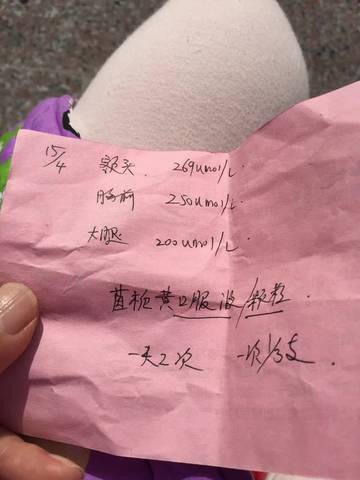 15/4 额头 269umol/L.
胸前 250umol/L.
大腿 200umol/L.
茵栀黄口服液/颗粒.
一天2次 一次1/3支.